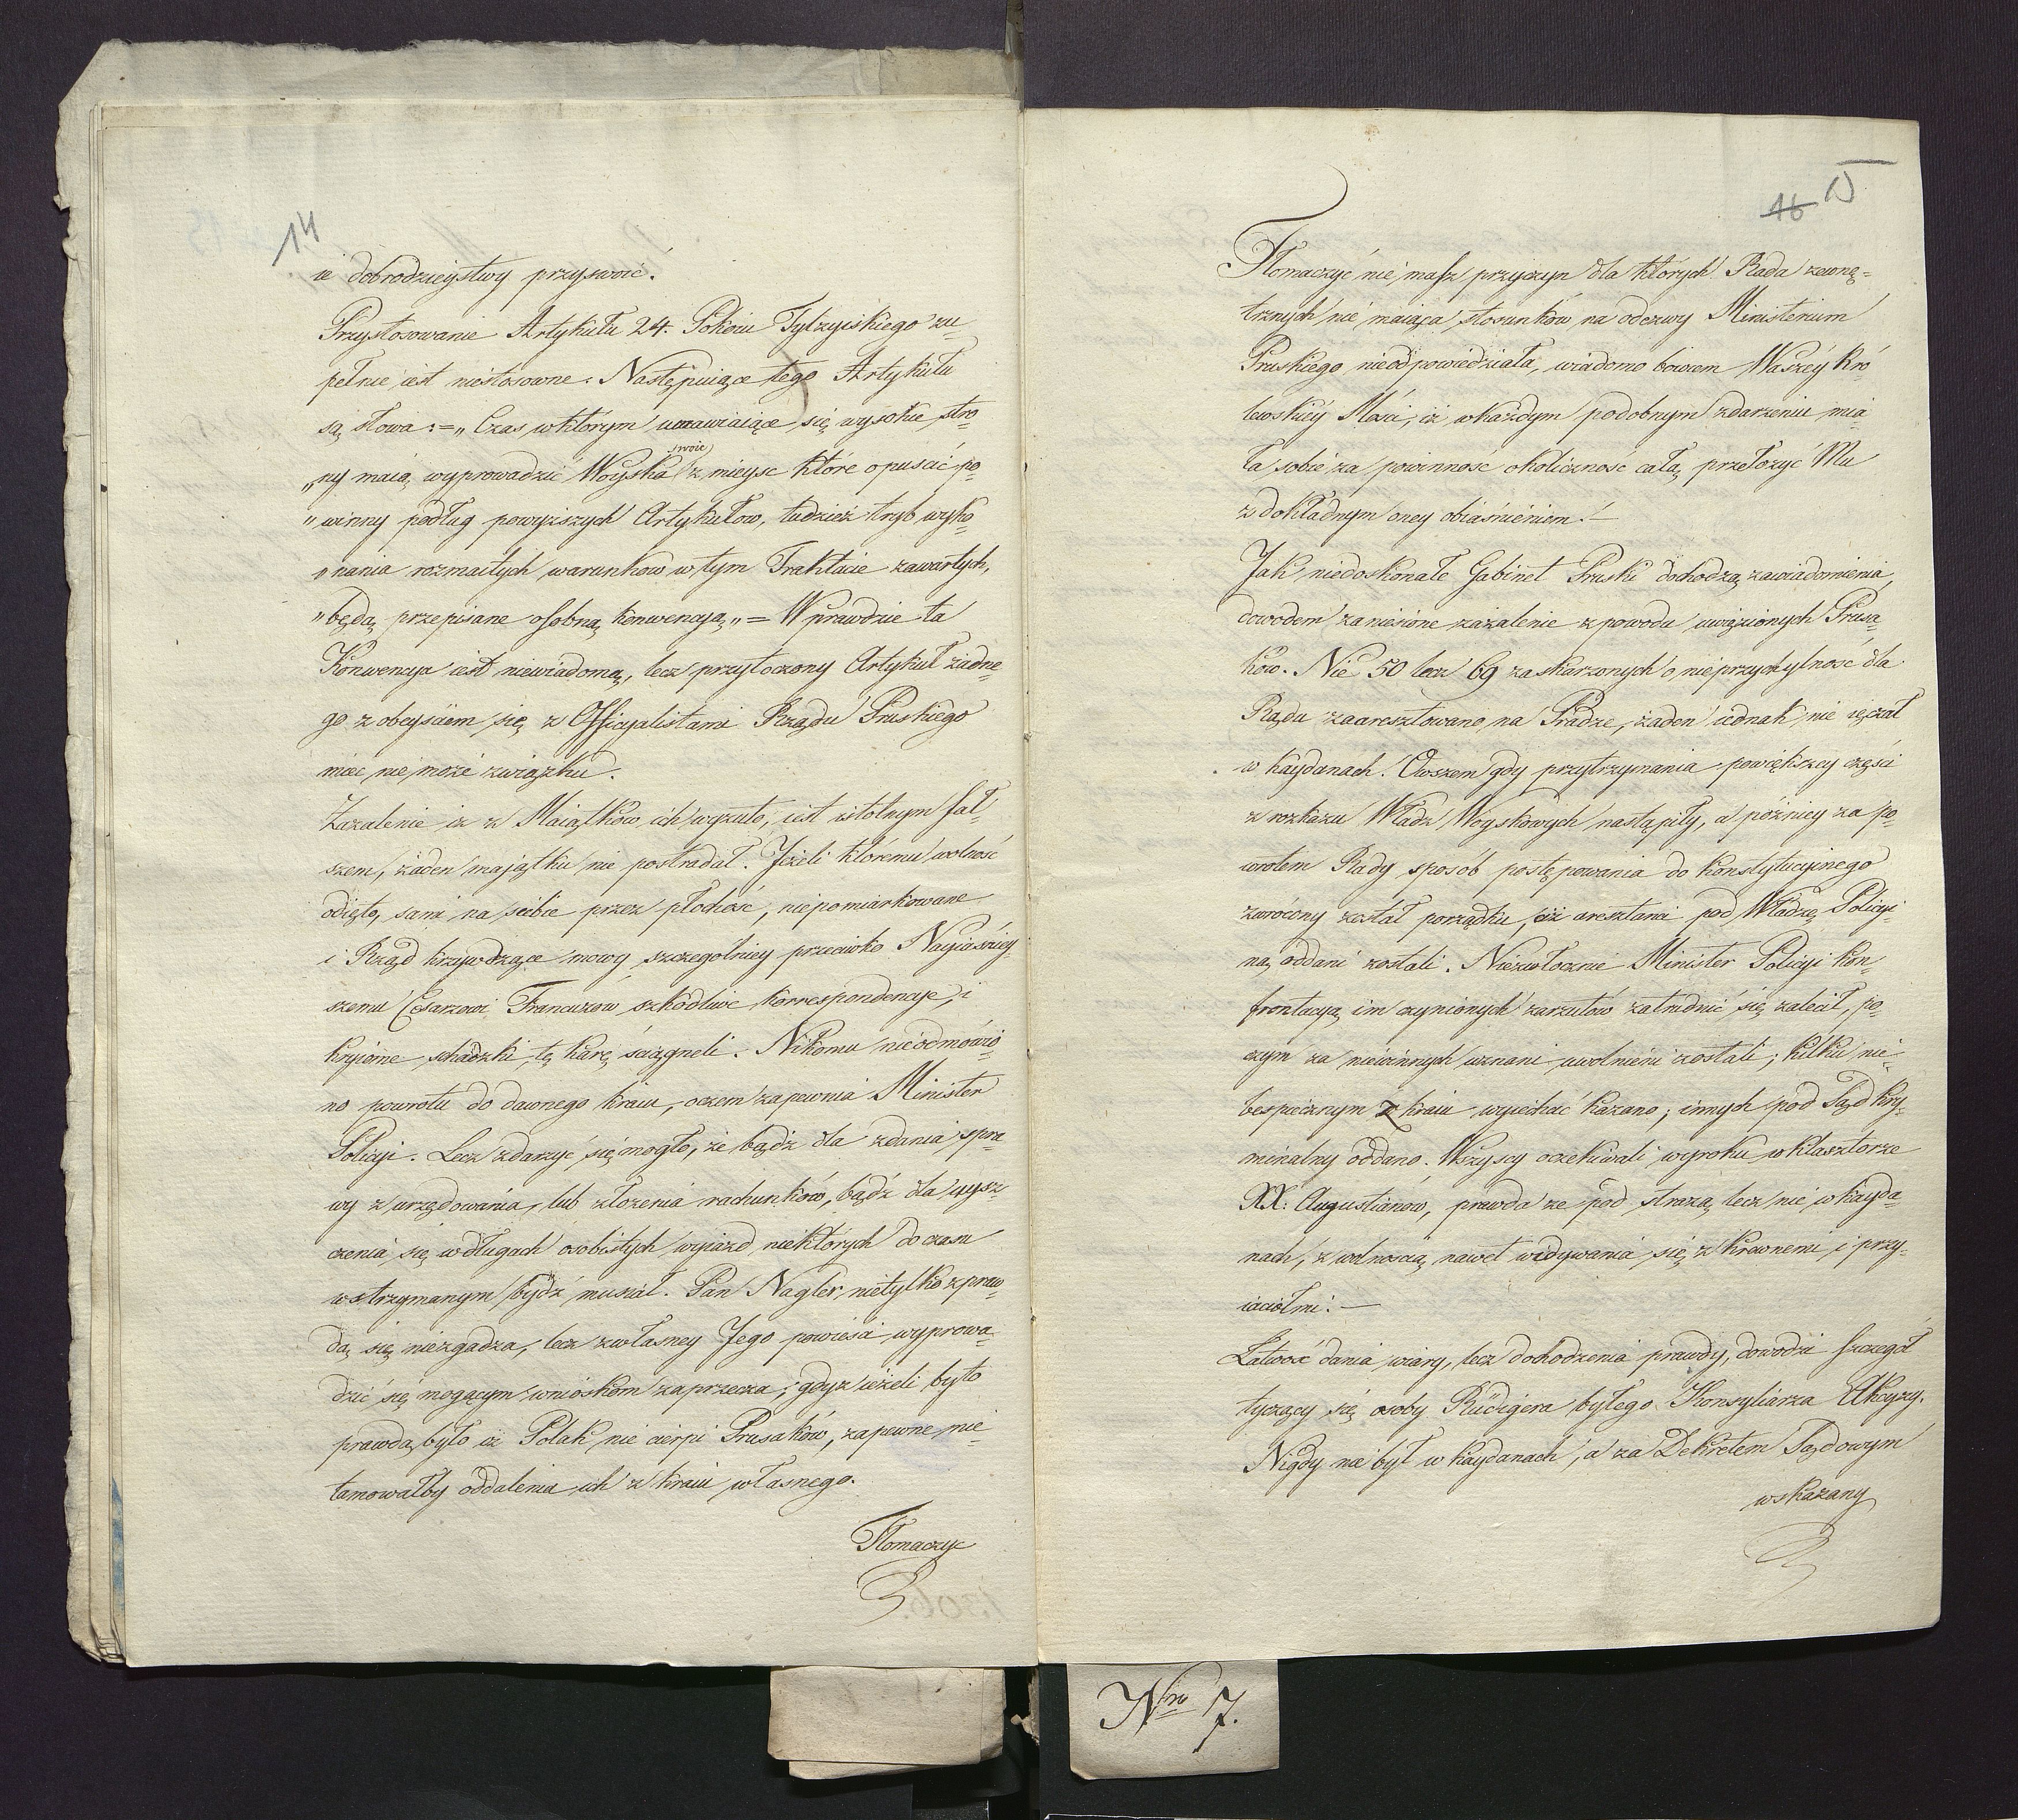 14
ie dobrodzieystwy przyswoić.
Przystosowanie Artykułu 24. Pokoiu Tylżyiskiego zu-
pełnie iest niestosowne. Następuiące tego Artykułu
są słowa: = „Czas w którym umawiaiące się wysokie stro
„ny maią wyprowadzić Woyska swoie z mieysc które opuścić po-
„winny podług powyższych Artykułow, tudzież tryb wyko-
„nania rozmaitych warunkow w tym Traktacie zawartych,
„będą przepisane osobną konwencyą„ = Wprawdzie ta
Konwencya iest niewiadomą, lecz przytoczony Artykuł żadne-
go z obeyściem się z Officyalistami Rządu Pruskiego
mieć nie może związku.
Zażalenie iż z Maiątków ich wyzuto, iest istotnym fał-
szem, żaden majątku nie postradał. Jeżeli któremu wolność
odięto, sami na siebie przez płochość, niepomiarkowane
i Rząd krzywdzące mowy szczegolniey przeciwko Nayiaśniey-
szemu Cesarzowi Francuzow szkodliwe korrespondencye, i
kryione schadzki, tę karę ściągneli. Nikomu nieodmówio-
no powrotu do dawnego kraiu, oczem zapewnia Minister
Policyi. Lecz zdarzyć się mogło, że bądź dla zdania spra
wy z urzędowania, lub złożenia rachunków, bądź dla uysz-
czenia się w długach osobistych wyiazd niektórych do czasu
wstrzymanym bydź musiał. Pan Nagler, nietylko z praw-
dą się niezgadza, lecz z własney Jego powieści wyprowa-
dzić się mogącym wnioskom zaprzecza; gdyż ieżeli było
prawdą, było iż Polak nie cierpi Prusaków, zapewne nie
tamowałby oddalenia ich z kraiu własnego.
Tłomaczyć
16 15
Tłomaczyć nie masz przyczyn dla których Rada zewnę-
trznych nie maiąca stosunków na odezwy Ministerium
Pruskiego nieodpowiedziała, wiadomo bowiem Waszéy Kró
lewskiéy Mości, iż w każdym podobnym zdarzeniu mia-
ła sobie za powinność okoliczność całą przełożyć Mu
z dokładnym oney obiaśnieniem. —
Jak niedoskonałe Gabinet Pruski dochodzą zawiadomienia,
dowodem zaniesione zażalenie z powodu uwięzionych Prusa-
ków. Nie 50 lecz 69 zaskarżonych o nieprzychylność dla
Rządu zaaresztowano na Pradze, żaden iednak nie ięczał
w kaydanach. Owszem gdy przytrzymania powiększey części
z rozkazu Władz Woyskowych nastąpiły, a pózniey za po-
wrotem Rady sposób postępowania do Konstytucyinego
zwrócony został porządku, iż aresztanci pod Władzę Policyi-
ną oddani zostali. Niezwłocznie Minister Policyi kon-
frontacyą im czynionych zarzutów zatrudnić się zalecił, po-
czym za niewinnych uznani uwolnieni zostali; kilku nie-
bespiecznym z kraiu wyiechać kazano; innych pod Sąd kry-
minalny oddano. Wszyscy oczekiwali wyroku w klasztorze
XX: Augustianów, prawda że pod strażą, lecz nie w kayda-
nach, z wolnością nawet widywania się z krewnemi i przy-
iaciołmi. —
Łatwość dania wiary, lecz dochodzenia prawdy, dowodzi szczegół
tyczący się osoby Rüdigera byłego Konsyliarza Akcyzy.
Nigdy nie był w kaydanach, a za Dekretem Sądowym
wskazany
Nro 7.